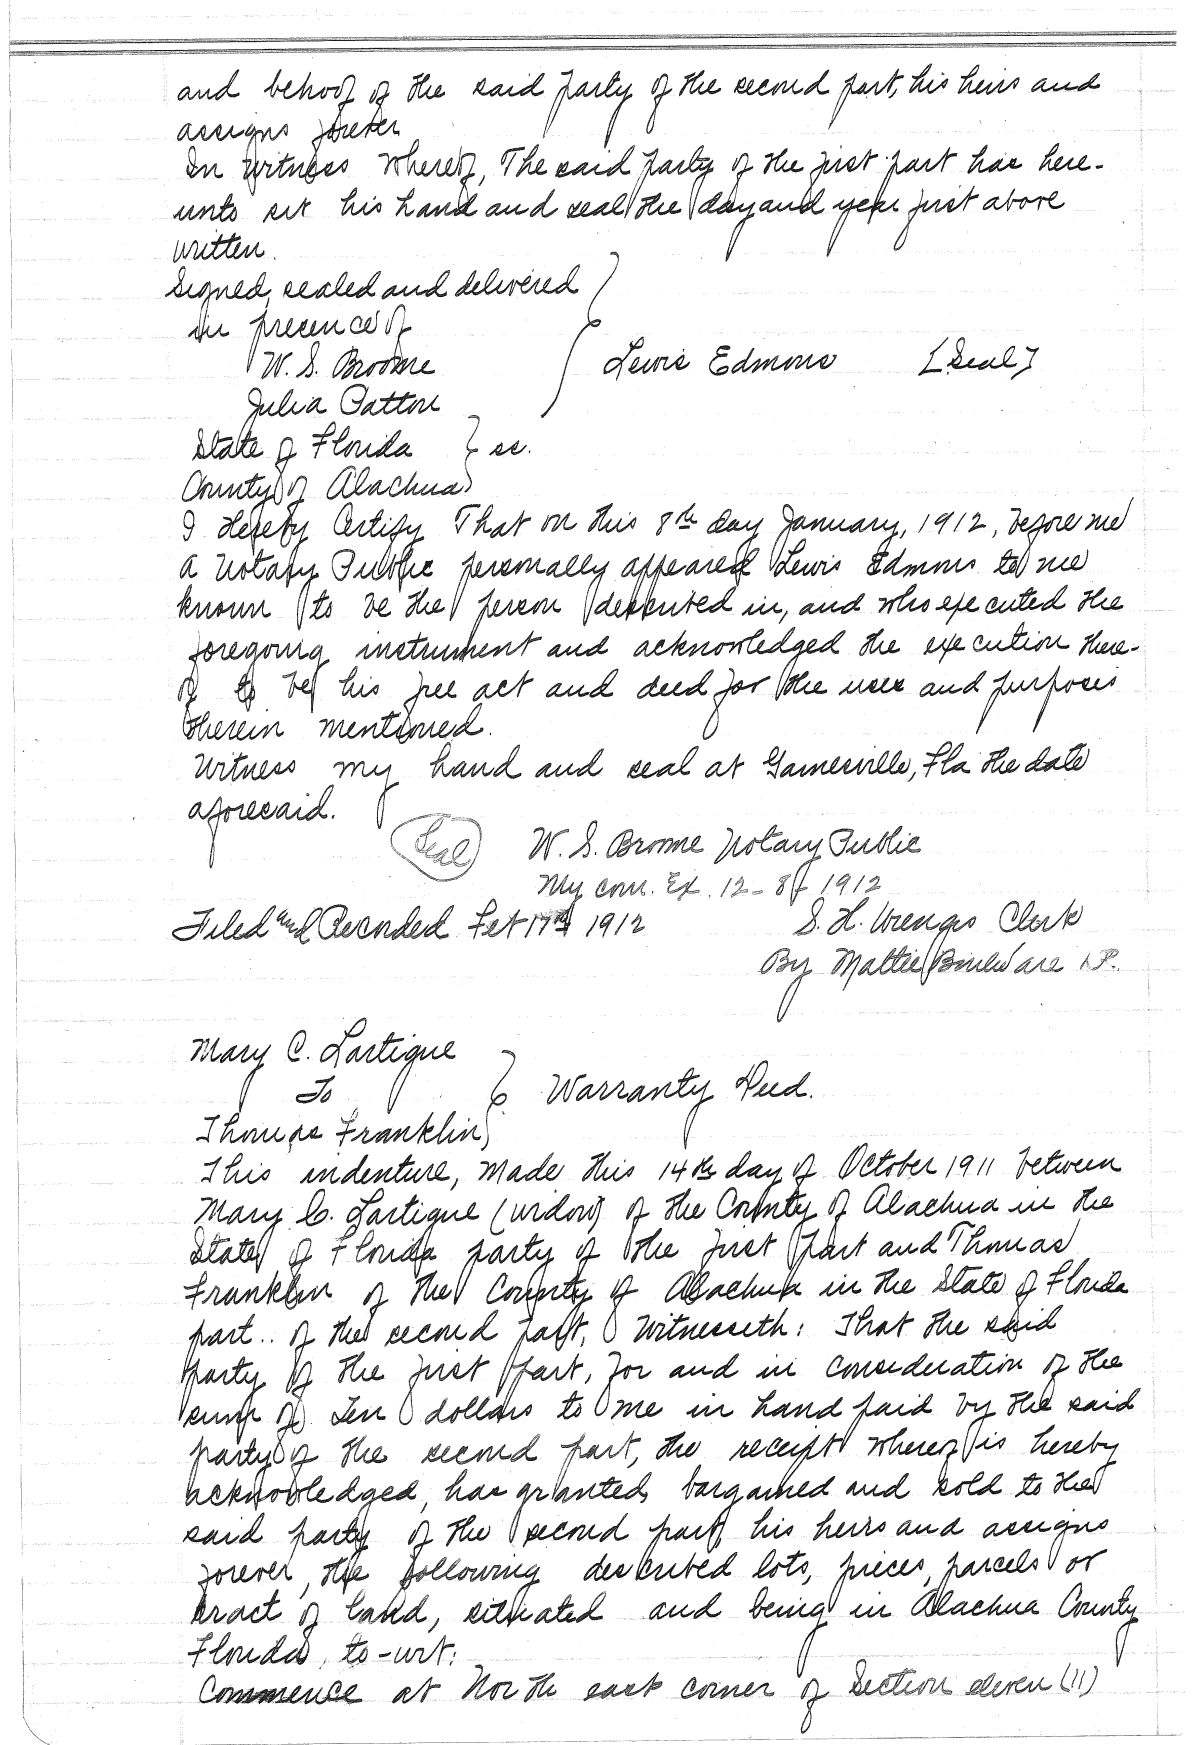 and behoof of the said party of the second part, his heirs and
assigns forever
In Witness Whereof, The said party of the first part has here-
unto set his hand and seal the day and year first above
written.
Signed, sealed and delivered
in presence of
W. S. Broome
Lewis Edmons [Seal]
Julia Patton
State of Florida } ss.
County of Alachua
I Hereby Certify That on this 8th day January, 1912, before me
a Notary Public personally appeared Lewis Edmons to me
known to be the person described in, and who executed the
foregoing instrument and acknowledged the execution there-
of to be his free act and deed for the uses and purposes
therein mentioned.
Witness my hand and seal at Gainesville, Fla the date
aforesaid.
Seal W. S. Broome Notary Public
My com. Ex. 12-8 1912
Filed and Recorded Feb 17th 1912 S. H. Wienges Clerk
By Mattie Boulware
Mary C. Lartigue
To } Warranty Deed.
Thomas Franklin
This indenture, Made this 14th day of October 1911 between
Mary C. Lartigue (widow) of the County of Alachua in the
State of Florida party of the first part and Thomas
Franklin of the County of Alachua in the State of Florida
part.. of the second part, Witnesseth: That the said
party of the first part, for and in consideration of the
sum of Ten dollars to me in hand paid by the said
party of the second part, the receipt whereof is hereby
acknowledged, has granted, bargained and sold to the
said party of the second part his heirs and assigns
forever, the following described lots, pieces, parcels or
tract of land, situated and being in Alachua County
Florida, to-wit:
Commence at North east corner of Section eleven (11)